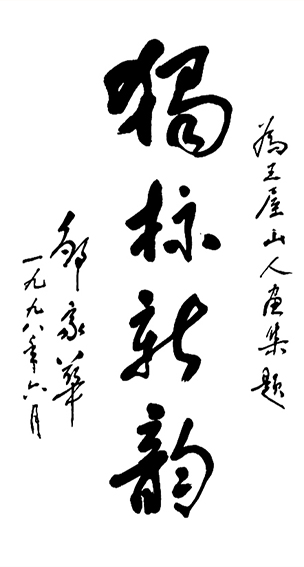 為王屋山人画集题
獨标新韵
邹家华
一九九八年六月